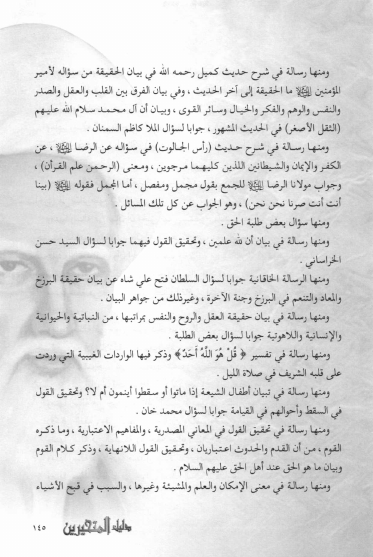 ومنها رسالة في شرح حديث كميل رحمه الله في بيان الحقيقة من سؤاله لأمير
المؤمنين ﷺ ما الحقيقة إلى آخر الحديث ، وفي بيان الفرق بين القلب والعقل والصدر
والنفس والوهم والفكر والخيال وسائر القوى ، وبيان أن آل محمد سلام الله عليهم
(الثقل الأصغر) في الحديث المشهور ، جوابا لسؤال الملا كاظم السمنان .
ومنها رسالة في شرح حديث (رأس الجالوت) في سؤاله عن الرضا ، عن
الكفر والإيمان والشيطانين اللذين كليهما مرجوين ، ومعنى (الرحمن علم القرآن) ،
وجواب مولانا الرضا للجمع بقول مجمل ومفصل ، أما المجمل فقوله (بينا
أنت أنت صرنا نحن نحن) ، وهو الجواب عن كل تلك المسائل .
ومنها سؤال بعض طلبة الحق .
ومنها رسالة في بيان أن لله علمين ، وتحقيق القول فيهما جوابا لسؤال السيد حسن
الخراساني .
ومنها الرسالة الخاقانية جوابا لسؤال السلطان فتح علي شاه عن بيان حقيقة البرزخ
والمعاد والتنعم في البرزخ وجنة الآخرة ، وغيرذلك من جواهر البيان .
ومنها رسالة في بيان حقيقة العقل والروح والنفس بمراتبها ، من النباتية والحيوانية
والإنسانية واللاهوتية جوابا لسؤال بعض الطلبة .
ومنها رسالة في تفسير ﴿ قُلْ هُوَ اللَّهُ أَحَدٌ ﴾ وذكر فيها الواردات الغيبية التي وردت
على قلبه الشريف في صلاة الليل .
ومنها رسالة في تبيان أطفال الشيعة إذا ماتوا أو سقطوا أينمون أم لا؟ وتحقيق القول
في السقط وأحوالهم في القيامة جوابا لسؤال محمد خان .
ومنها رسالة في تحقيق القول في المعاني المصدرية ، والمفاهيم الاعتبارية ، وما ذكره
القوم ، من أن القدم والحدوث اعتباريان ، وتحقيق القول اللانهاية ، وذكر كلام القوم
وبيان ما هو الحق عند أهل الحق عليهم السلام .
ومنها رسالة في معنى الإمكان والعلم والمشيئة وغيرها ، والسبب في قبح الأشياء
دليل المتحيرين ١٤٥